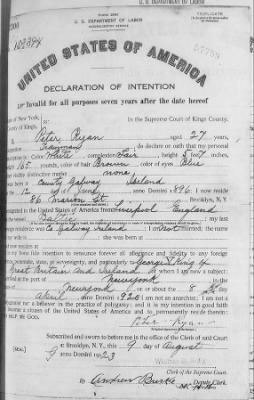 U. S. DEPARTMENT OF LABOR
TRIPLICATE
U. S. DEPARTMENT OF LABOR
UNITED STATES OF AMERICA
DECLARATION OF INTENTION
Invalid for all purposes seven years after the date hereof
of New York,
County of Kings,
In the Supreme Court of Kings County.
Peter Ryan aged 27 years,
do declare on oath that my personal
is: Color White complexion Fair 5 7 inches,
165 color of hair Brown color of eyes Blue
distinctive marks none
was born in County Galway Ireland
12 of June Domini 1896 I now reside
86 Marion St Brooklyn, N. Y.
to the United States of America from Liverpool England
Baltic my last
residence was Co Galway Ireland I am not married; the name
she was born at
bona fide intention to renounce forever all allegiance and fidelity to any foreign
state, or sovereignty, and particularly to George V King of
Great Britain and Ireland of whom I am now a subject;
arrived at the port of New York in the
of New York on or about the 8 day
April Domini 1920 I am not an anarchist; I am not a
nor a believer in the practice of polygamy; and it is my intention in good faith
become a citizen of the United States of America and to permanently reside therein:
HELP ME GOD.
Peter Ryan
Subscribed and sworn to before me in the office of the Clerk of said Court
at Brooklyn, N. Y., this 9 day of August
Domini 1923
Clerk of the Supreme Court.
By Andrew Burke Deputy Clerk.